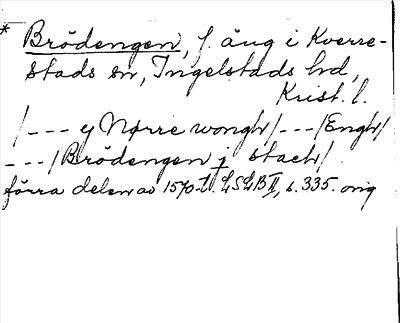 * Brödengen, f. äng i Kverre-
stads sn, Ingelstads hd,
Krist. l.
/--- y Nørre wongh/---/Engh/
---/Brödengen j stach/
förra delen av 1570-t. LSLB II, s. 335. orig